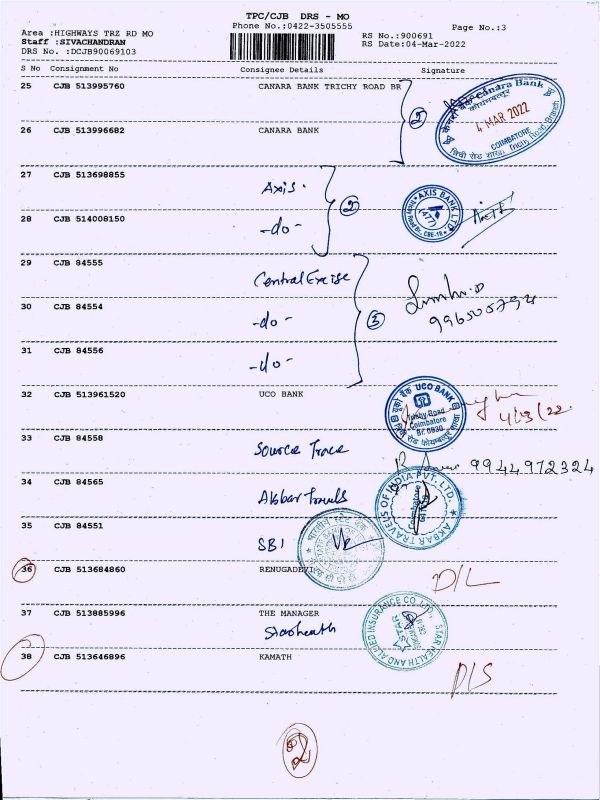 TPC/CJB DRS - MO
Phone No.:0422-3505555
Page No.:3
Area :HIGHWAYS TRZ RD MO
Staff :SIVACHANDRAN
DRS No. :DCJB90069103
RS No.:900691
RS Date:04-Mar-2022
S No Consignment No Consignee Details Signature
25 CJB 513995760 CANARA BANK TRICHY ROAD BR
Canara Bank
4 MAR 2022
COIMBATORE
26 CJB 513996682 CANARA BANK
27 CJB 513698855 Axis.
2
AXIS BANK LTD.
28 CJB 514008150 -do-
29 CJB 84555 Central Excise
30 CJB 84554 -do-
3
31 CJB 84556 -do-
32 CJB 513961520 UCO BANK
UCO BANK
Trichy Road
Coimbatore
Br. 0630
4/03/22
33 CJB 84558 Source Trace
9944972324
34 CJB 84565 Akbar Travels
AKBAR TRAVELS OF INDIA PVT. LTD.
Coimbatore
35 CJB 84551 SBI
36 CJB 513684860 RENUGADEVI
D/L
37 CJB 513885996 THE MANAGER
Starheath
STAR HEALTH AND ALLIED INSURANCE CO. LTD.
STAR
38 CJB 513646896 KAMATH
D/S